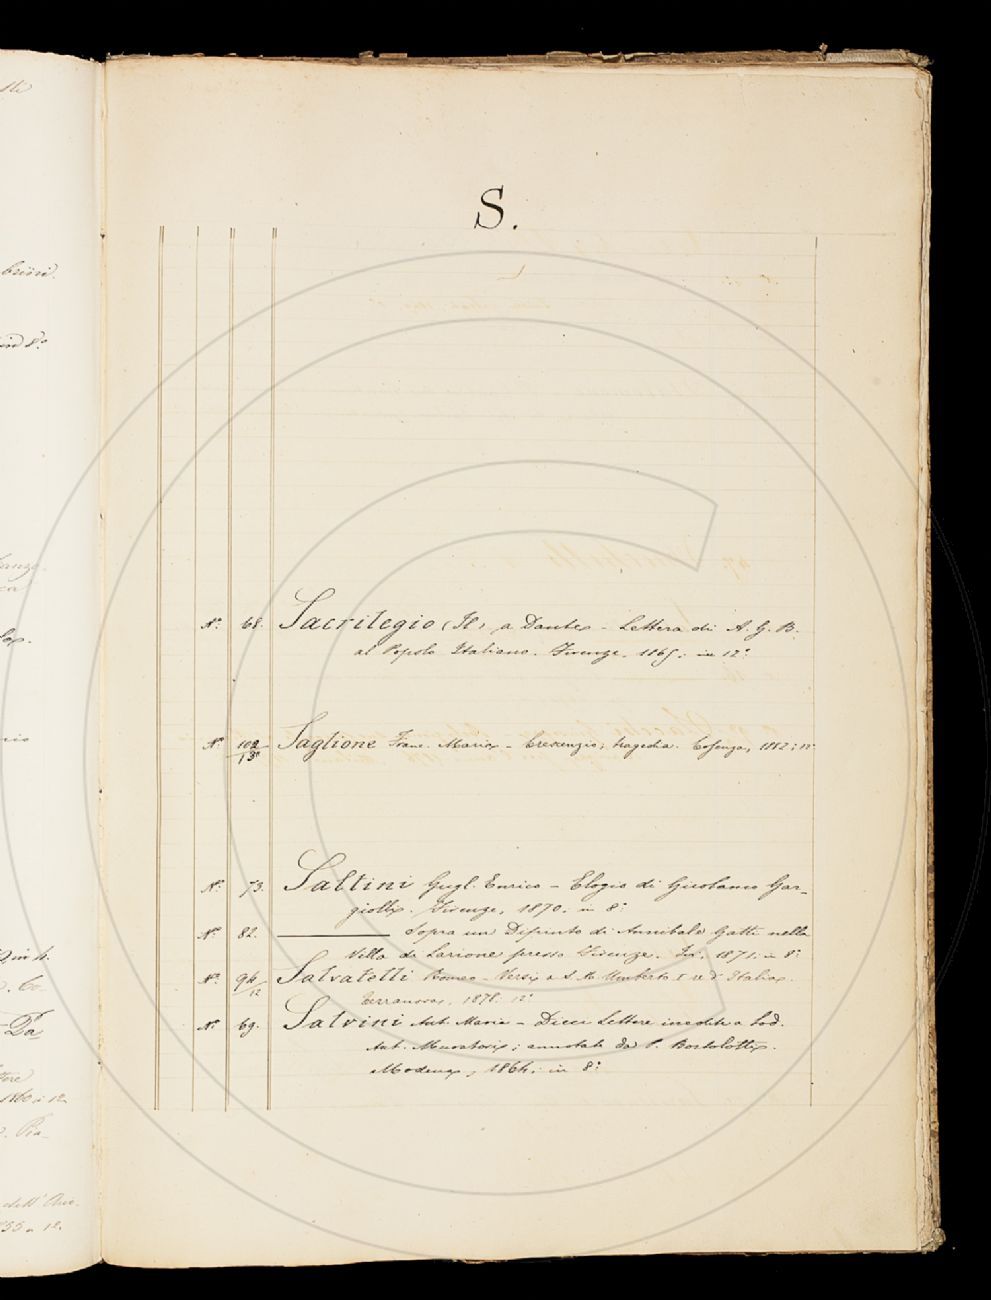 S.
N.° 68. Sacrilegio (Il) a Dante - Lettera di A. G. B.
al Popolo Italiano. Firenze. 1865; in 12.°
N.° 102/13 Saglione Franc. Maria - Crescenzio; tragedia. Cosenza, 1882; 12
N.° 73. Saltini Gugl. Enrico - Elogio di Girolamo Gar-
giolli. Firenze, 1870; in 8.°
N.° 82. Sopra un Dipinto di Annibale Gatti nella
Villa di Larione presso Firenze. 1871; in 8.°
N.° 94/12 Salvatelli Romeo - Versi a S. M. Umberto I re d'Italia.
Terranova, 1878. 12.°
N.° 69. Salvini Ant. Maria - Dieci Lettere inedite a Lod.
Ant. Muratori; annotate da P. Bortolotti.
Modena, 1864; in 8.°
in 8.°
1860 in 12
dell'